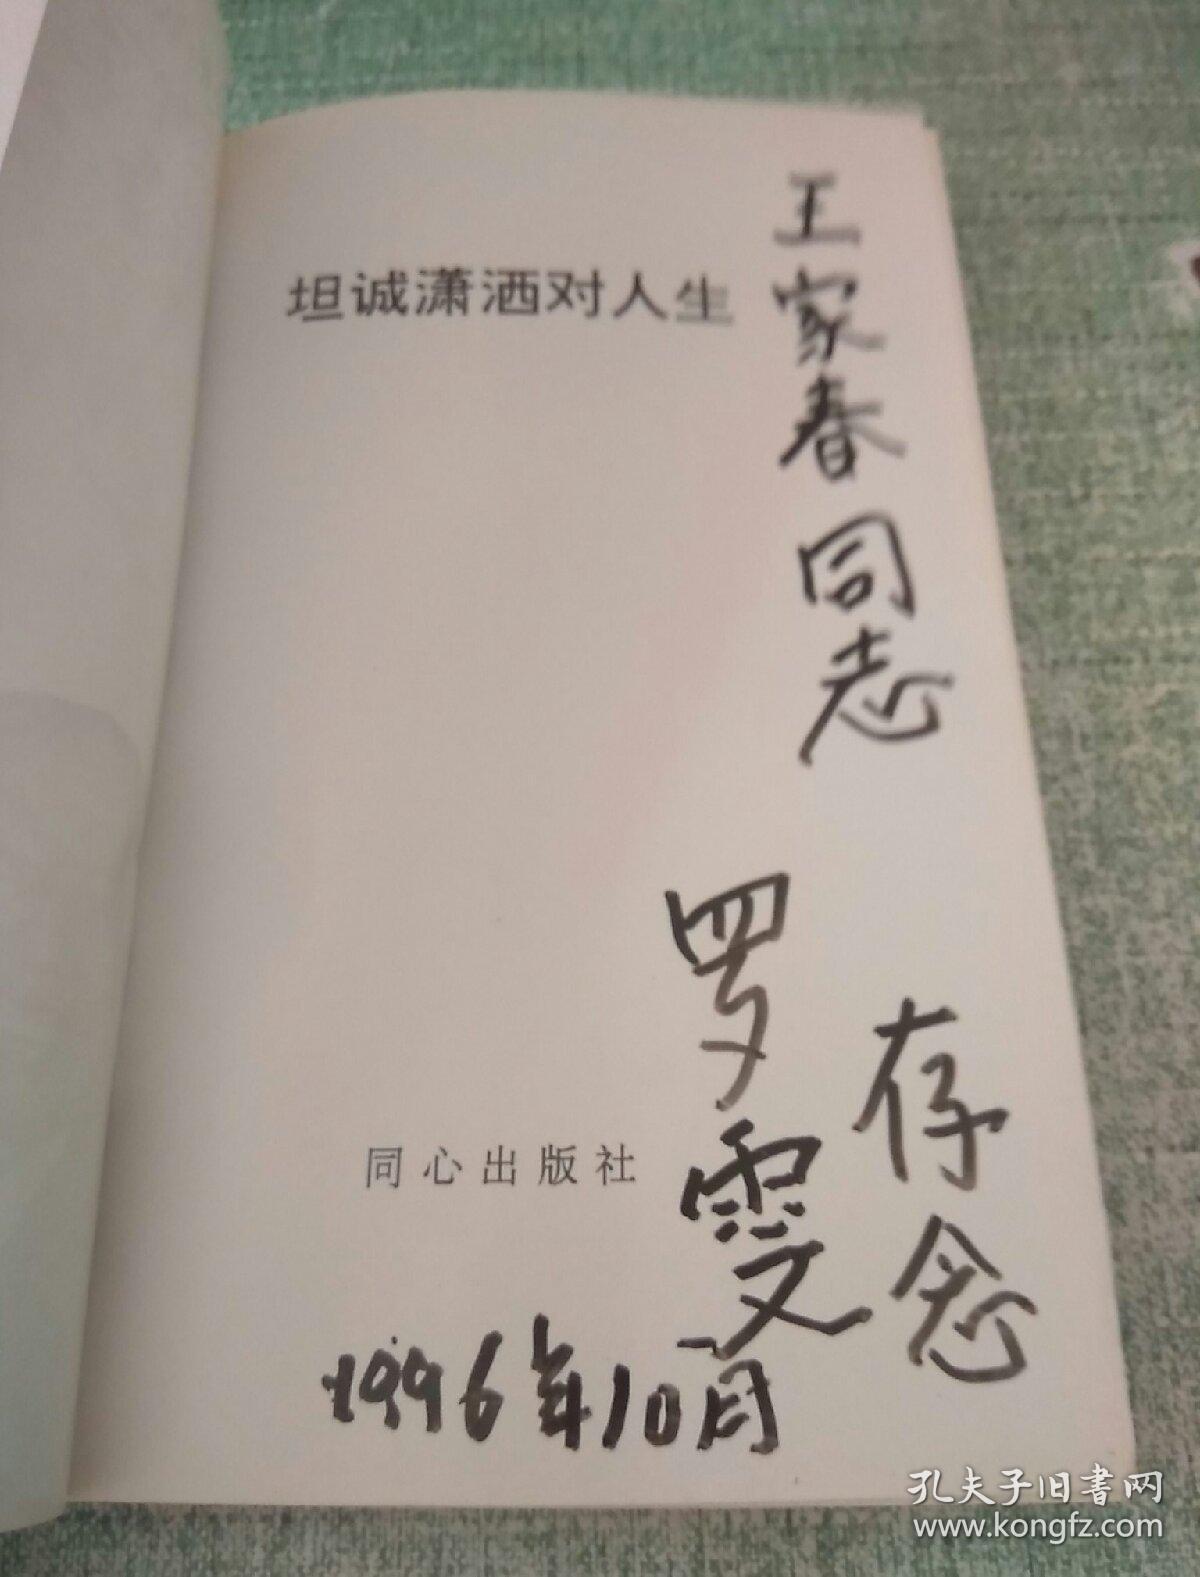 坦诚潇洒对人生
王家春同志
存念
罗雯
1996年10月
同心出版社
孔夫子旧书网
www.kongfz.com